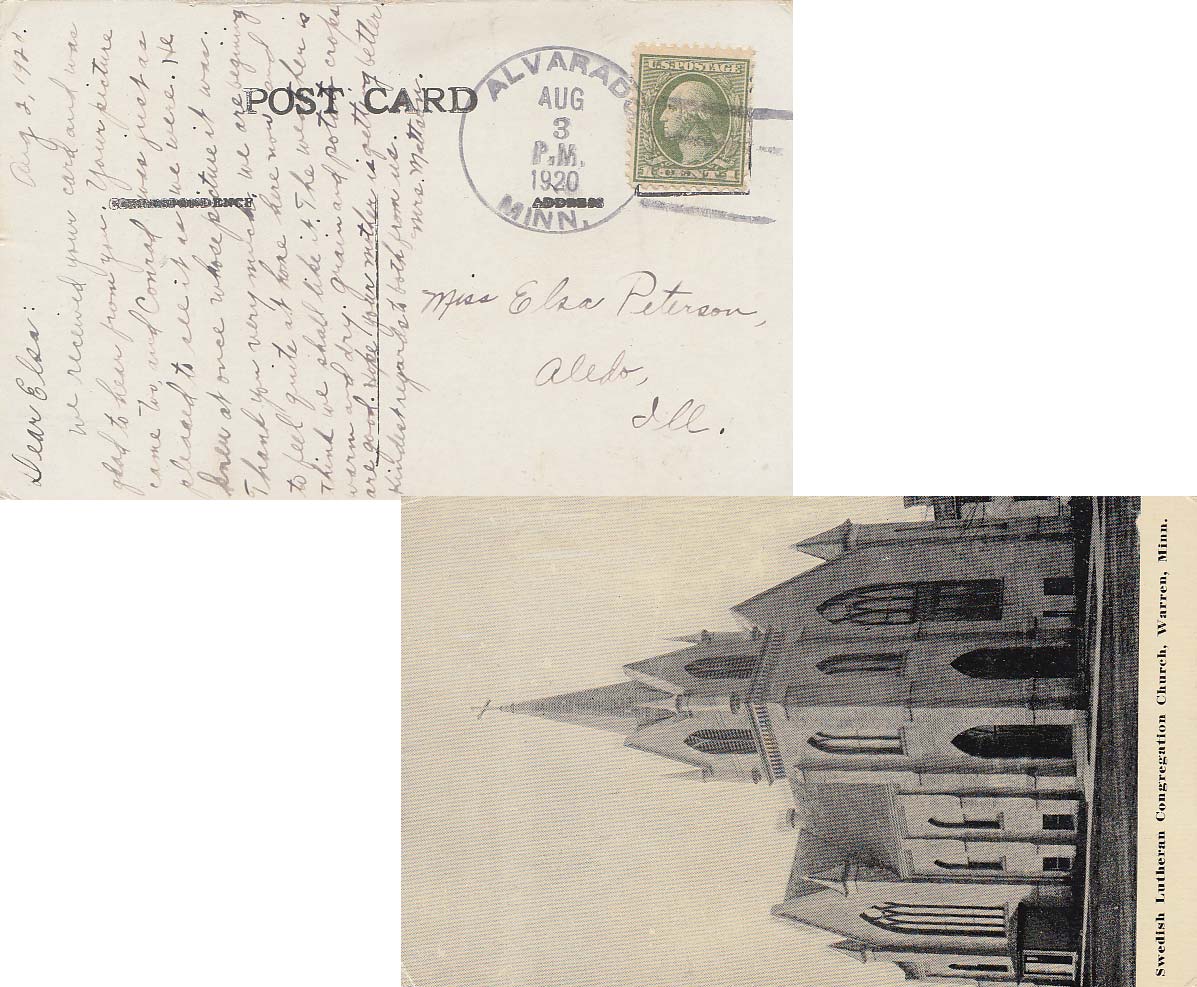 POST CARD
CORRESPONDENCE
ADDRESS
ALVARADO
AUG
3
P.M.
1920
MINN.
U.S. POSTAGE
Miss Elsa Peterson,
Aledo,
Ill.
Aug 2, 1920.
Dear Elsa:
We received your card and was
glad to hear from you. Your picture
came too, and Conrad was just as
pleased to see it as we were. He
knew at once whose picture it was.
Thank you very much. We are begining
to feel quite at home here now and
think we shall like it. The weather is
warm and dry. Grain and potato crops
are good. Hope your mother is getting better.
Kindest regards to both from us.
Mrs.
Swedish Lutheran Congregation Church, Warren, Minn.